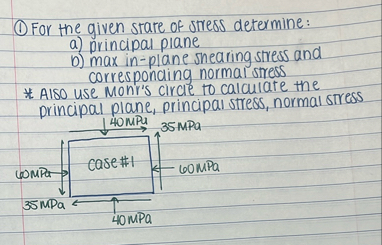 ① For the given state of stress determine:
a) principal plane
b) max in-plane shearing stress and
corresponding normal stress
* Also use Mohr's circle to calculate the
principal plane, principal stress, normal stress
40MPa
35MPa
case#1
60MPa
60MPa
35MPa
40MPa